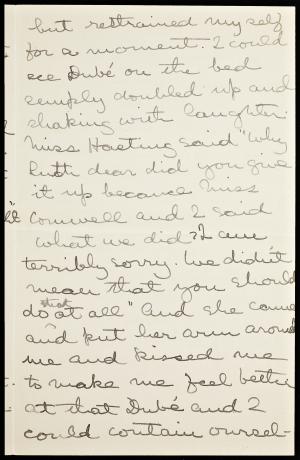 but restrained my self
for a moment. I could
see Dubé on the bed
simply doubled up and
shaking with laughter.
Miss Hasting said "Why
Ruth dear did you give
it up because Miss
Cornwell and I said
what we did? I am
terribly sorry. We didn't
mean that you should
do that at all" And she came
and put her arm around
me and kissed me
to make me feel better
at that Dubé and I
could contain oursel-